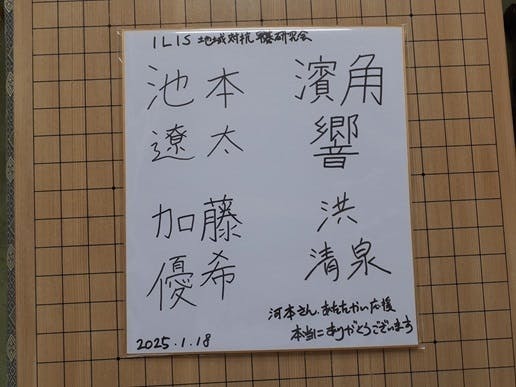 ILIS 地域対抗 碁研究会
池本
遼太
濱角
響
加藤
優希
洪
清泉
河本さん、あたたかい応援
本当にありがとうございます
2025.1.18